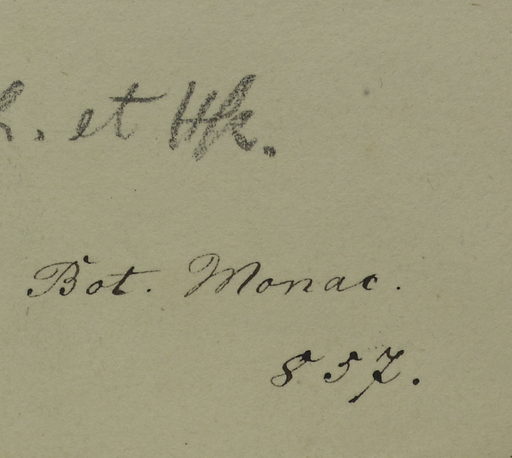 h. et Hk.
Bot. Monac.
857.